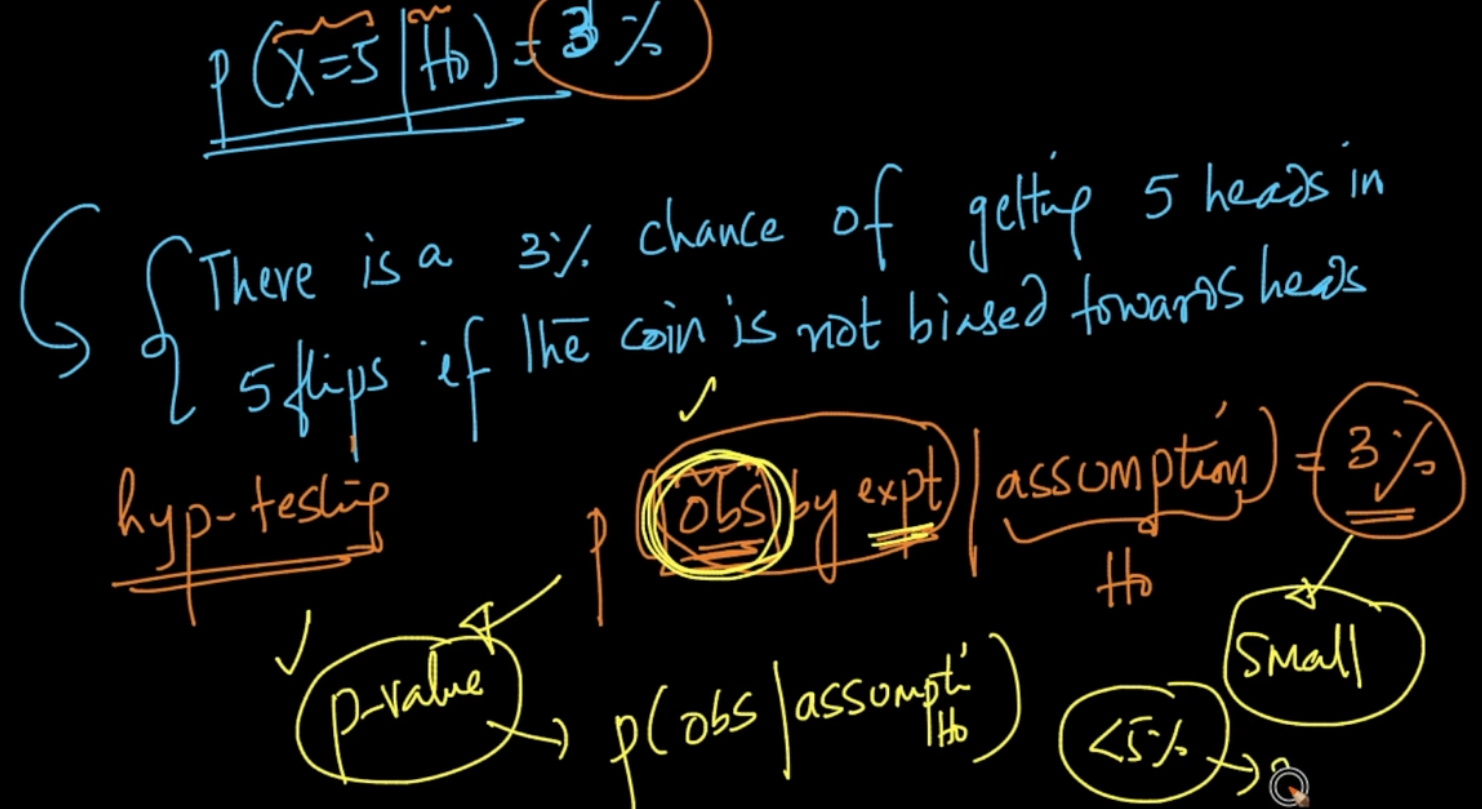 P(X=5|H0) = 3%
There is a 3% chance of getting 5 heads in
5 flips if the coin is not biased towards heads
hyp-testing
P(obs by expt | assumption) = 3%
H0
small
p-value → P(obs | assumptn H0)
<5% →